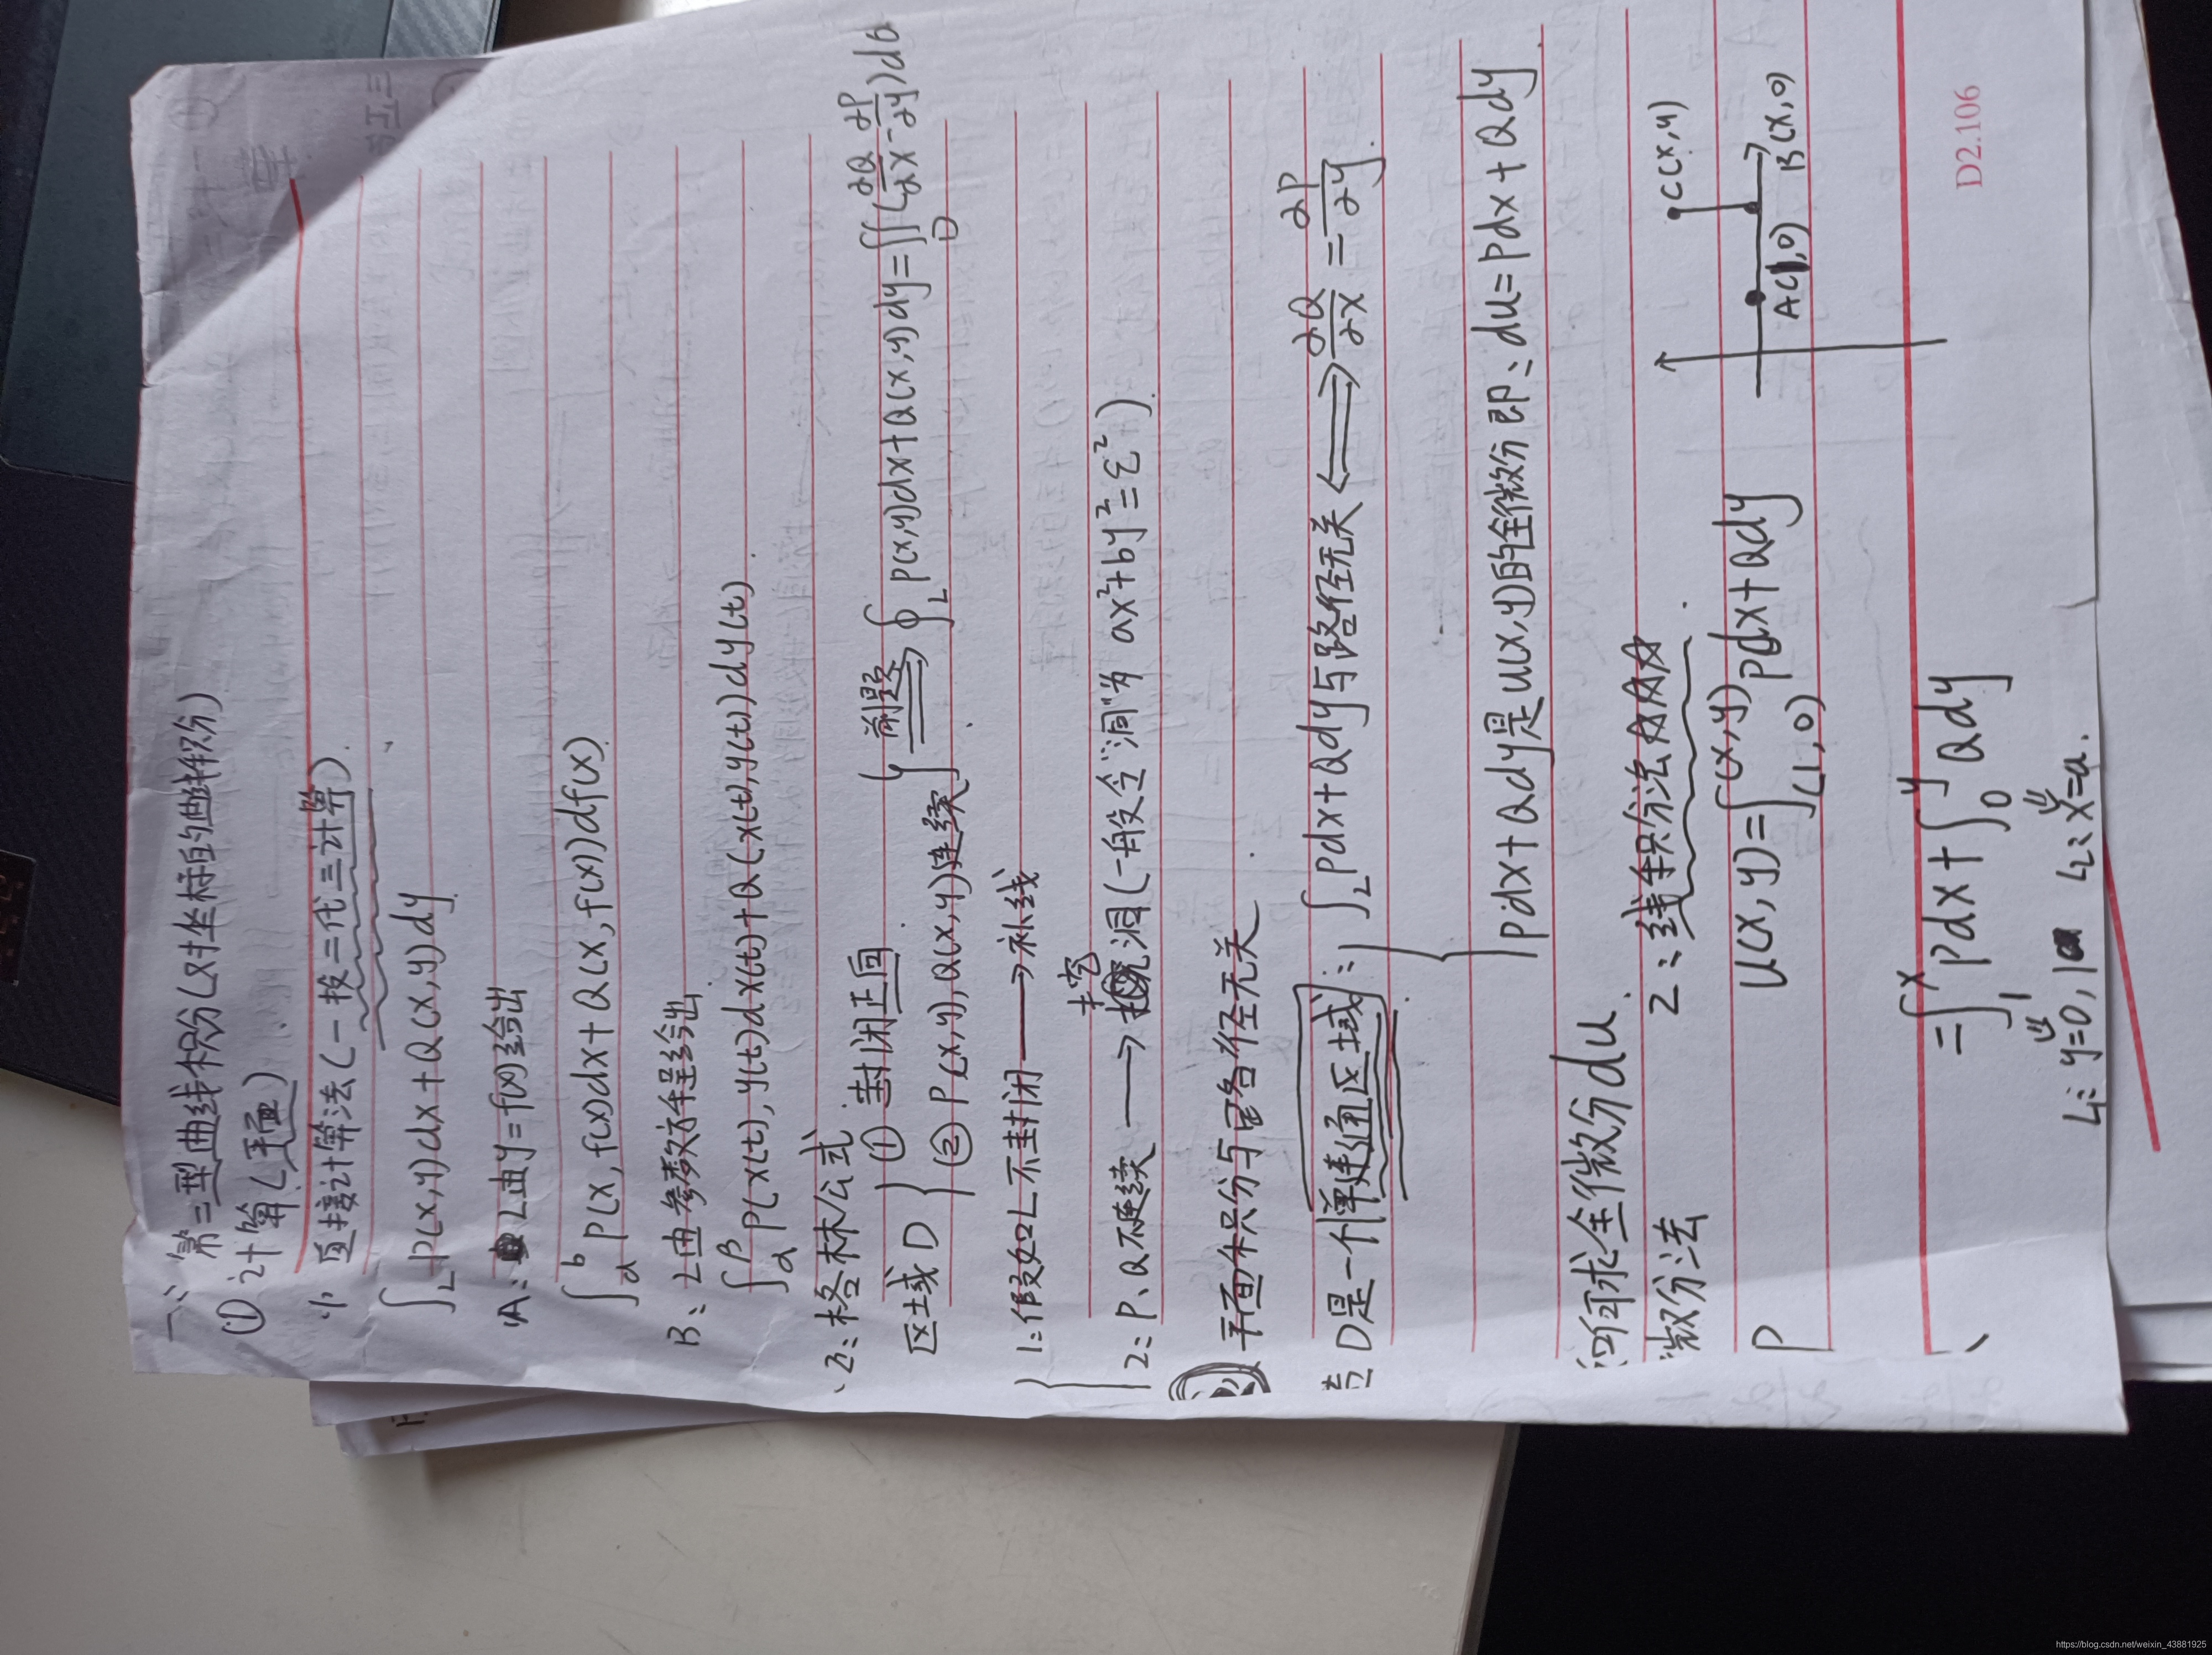 一、第二型曲线积分(对坐标的曲线积分)
①、计算(平面)
1、直接计算法(一投二代三计算).
∫_L P(x,y)dx+Q(x,y)dy
A: L由y=f(x)给出
∫_a^b P(x,f(x))dx+Q(x,f(x))df(x)
B: L由参数方程给出
∫_α^β P(x(t),y(t))dx(t)+Q(x(t),y(t))dy(t)
2:格林公式
区域D { ① 封闭正向. ② P(x,y),Q(x,y)连续 } 前题⇒ ∮_L P(x,y)dx+Q(x,y)dy=∬_D(∂Q/∂x-∂P/∂y)dσ
1:假如L不封闭→补线
2:P、Q不连续→挖洞(一般令"洞"为 ax²+by²=ε²).
平面积分与路径无关.
D是一个单连通区域: ∫_L Pdx+Qdy与路径无关⟺∂Q/∂x=∂P/∂y.
Pdx+Qdy是u(x,y)的全微分即:du=Pdx+Qdy
何求全微分du.
微分法
2:线积分法
C(x,y)
A(1,0)
B(x,0)
P
u(x,y)=∫_(1,0)^(x,y) Pdx+Qdy
=∫_1^x Pdx+∫_0^y Qdy
L₁:y=0, L₂:x=a.
D2.106
https://blog.csdn.net/weixin_43881925